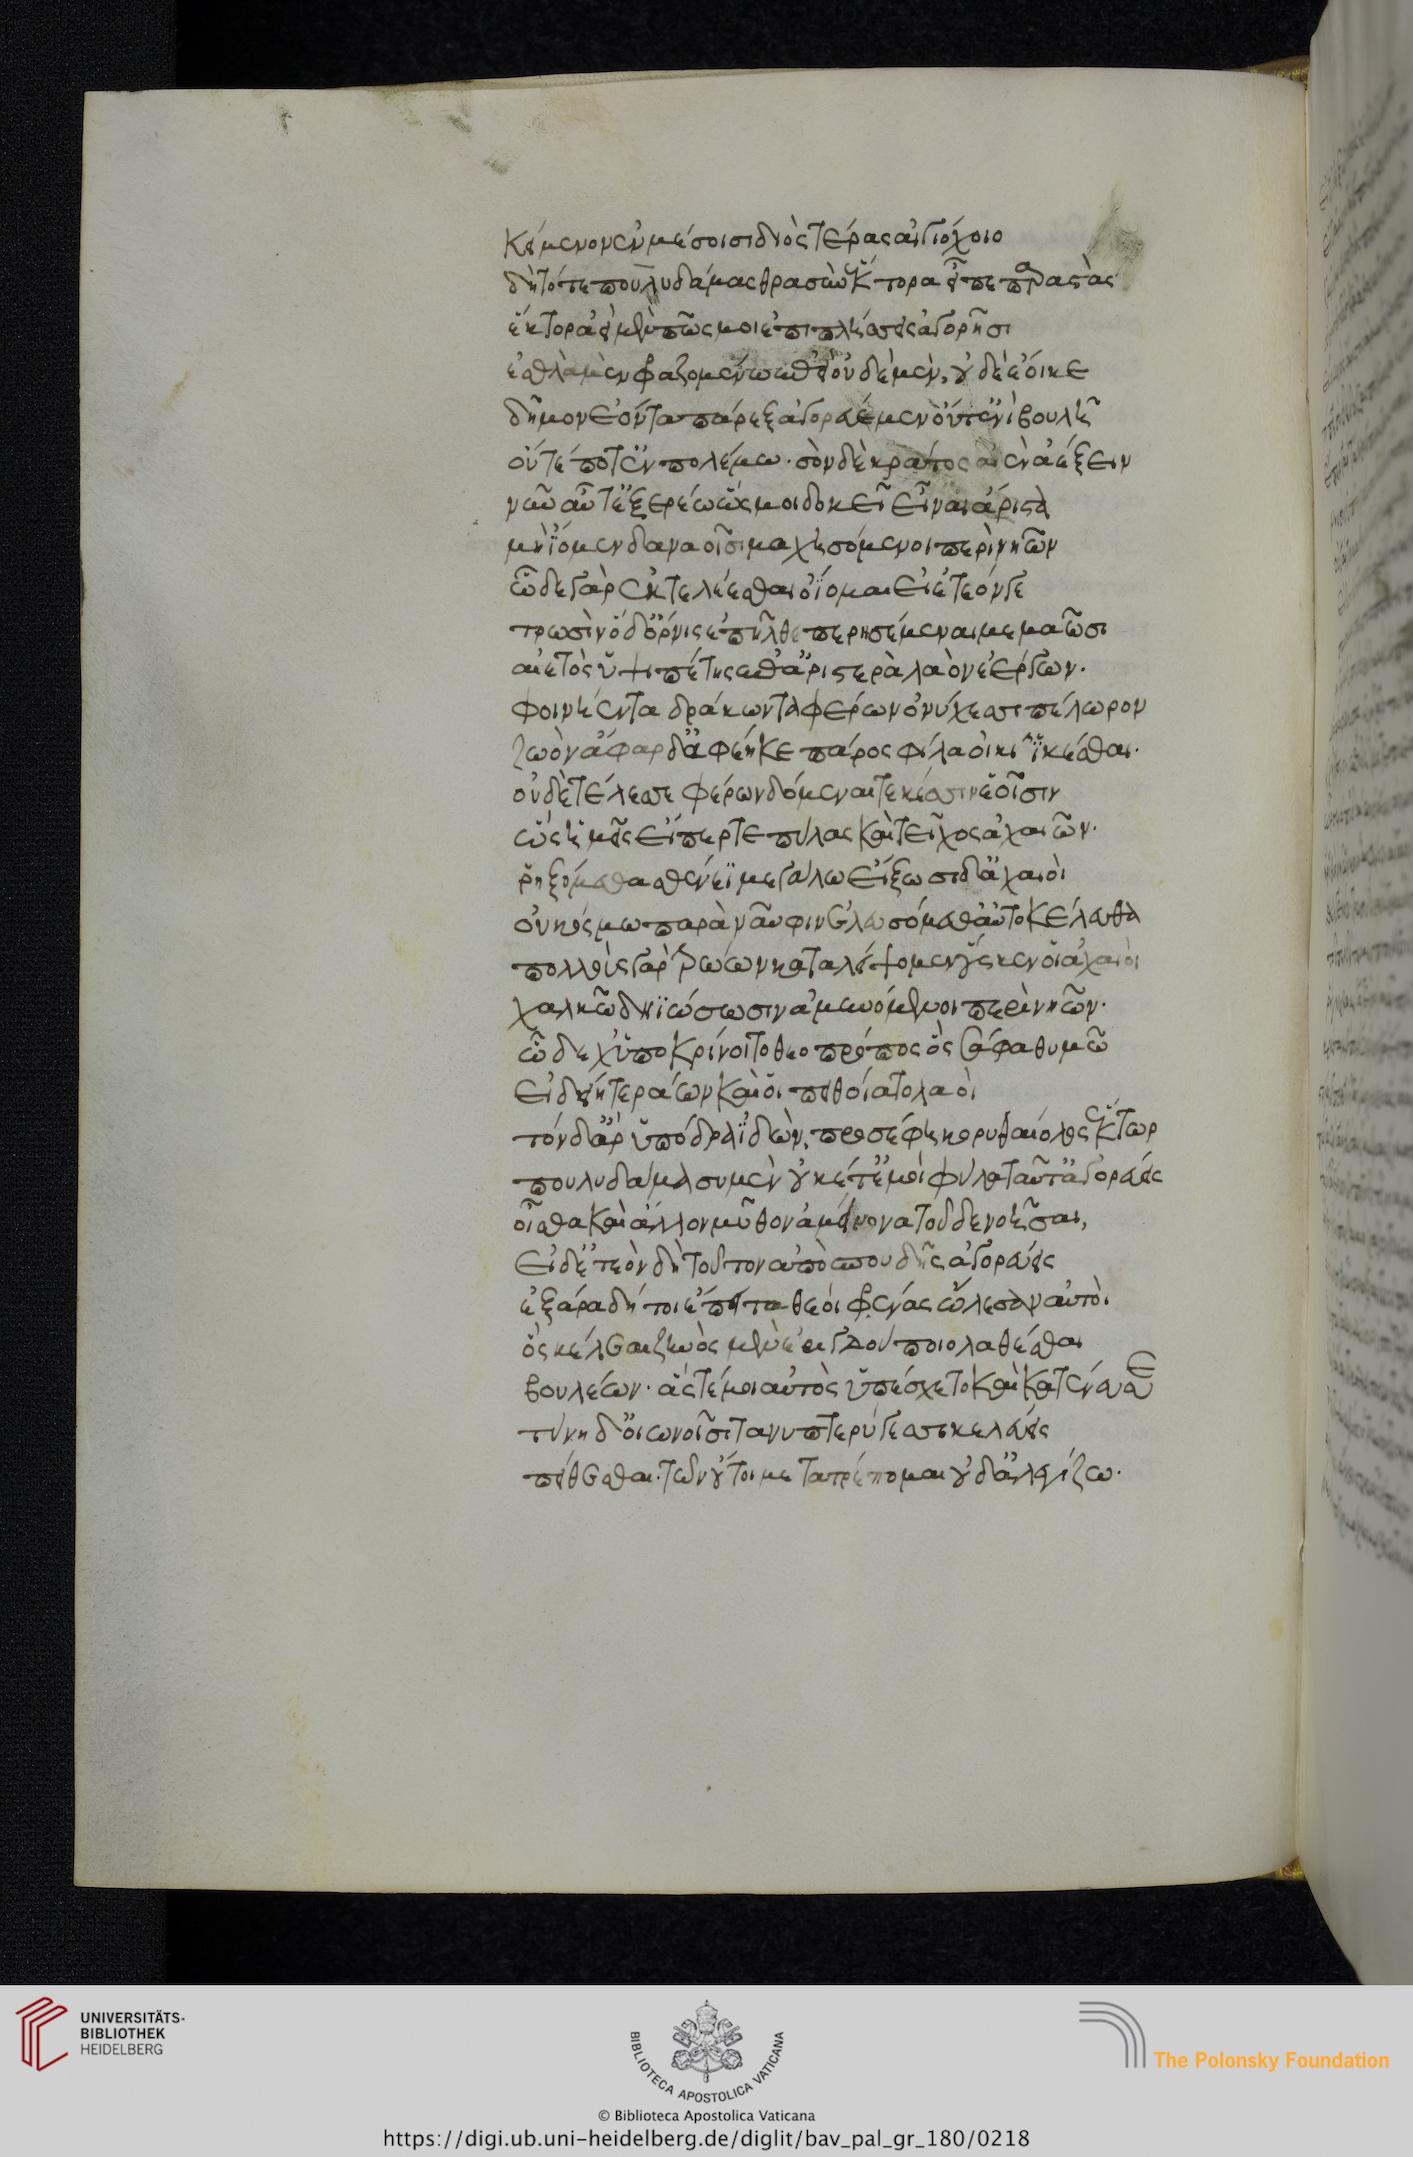 κείμενον ἐν μέσοισι διὸς τέρας αἰγιόχοιο
δὴ τότε πουλυδάμας θρασὺν ἕκτορα εἶπε παραστὰς
ἕκτορ ἀεὶ μὲν πῶς μοι ἐπιπλήσσεις ἀγορῆσι
ἐσθλὰ μὲν φραζομένω ἐπεὶ οὐδὲ μὲν, οὐδὲ ἔοικε
δῆμον ἐόντα παρὲξ ἀγορευέμεν οὔτ' ἐνὶ βουλῇ
οὔτέ ποτ' ἐν πολέμω. σὸν δὲ κράτος αἰὲν ἀέξειν
νῦν αὖτ' ἐξερέω ὥς μοι δοκεῖ εἶναι ἄριστα
μὴ ἴομεν δαναοῖσι μαχησόμενοι περὶ νηῶν
ὧδε γὰρ ἐκτελέεσθαι ὀΐομαι εἰ ἐτεόν γε
τρωσὶν ὅδ' ὄρνις ἐπῆλθε περησέμεναι μεμαῶσι
αἰετὸς ὑψιπέτης ἐπ' ἀριστερὰ λαὸν ἐέργων.
φοινήεντα δράκωντα φέρων ὀνύχεσσι πέλωρον
ζωὸν ἄφαρ δ' ἀφέηκε πάρος φίλα οἰκί' ἱκέσθαι.
οὐδὲ τέλεσσε φέρων δόμεναι τεκέεσσιν ἑοῖσιν
ὣς ἡμεῖς εἴπερ τε πύλας καὶ τεῖχος ἀχαιῶν.
ῥηξόμεθα σθένεϊ μεγάλω εἴξωσι δ' ἀχαιοὶ
οὐ κόσμω παρὰ ναῦφιν ἐλευσόμεθ' αὐτὰ κέλευθα
πολλοὺς γὰρ τρώων καταλείψομεν οὕς κεν ἀχαιοὶ
χαλκῶ δηϊώσωσιν ἀμυνόμενοι περὶ νηῶν.
ὧδέ χ' ὑποκρίνοιτο θεοπρόπος ὃς σάφα θυμῶ
εἰδείη τεράων καὶ οἱ πειθοίατο λαοὶ
τὸν δ' ἄρ' ὑπόδρα ἰδὼν, προσέφη κορυθαίολος ἕκτωρ
πουλυδάμα συ μὲν οὐκέτ' ἐμοὶ φίλα ταῦτ' ἀγορεύεις
οἶσθα καὶ ἄλλον μῦθον ἀμείνονα τοῦδε νοῆσαι,
εἰ δ' ἐτεὸν δὴ τοῦτον ἀπὸ σπουδῆς ἀγορεύεις
ἐξ ἄρα δή τοι ἔπειτα θεοὶ φρένας ὤλεσαν αὐτοὶ
ὃς κέλεαι ζηνὸς μὲν ἐριγδούποιο λαθέσθαι
βουλέων. ἅς τέ μοι αὐτὸς ὑπέσχετο καὶ κατένευσε
τύνη δ' οἰωνοῖσι τανυπτερύγεσσι κελεύεις
πείθεσθαι. τῶν οὔτοι μετατρέπομαι οὐδ' ἀλεγίζω.
UNIVERSITÄTS-
BIBLIOTHEK
HEIDELBERG
BIBLIOTECA APOSTOLICA VATICANA
The Polonsky Foundation
© Biblioteca Apostolica Vaticana
https://digi.ub.uni-heidelberg.de/diglit/bav_pal_gr_180/0218